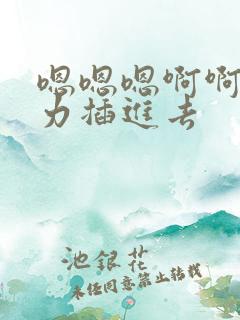 嗯嗯嗯啊啊
力插進去
池銀花
未经同意禁止转载